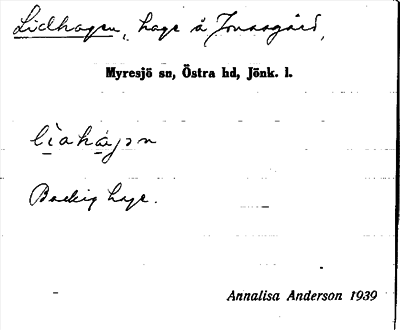 Lidhagen, hage å Jonasgård,
Myresjö sn, Östra hd, Jönk. l.
Backig hage.
Annalisa Anderson 1939